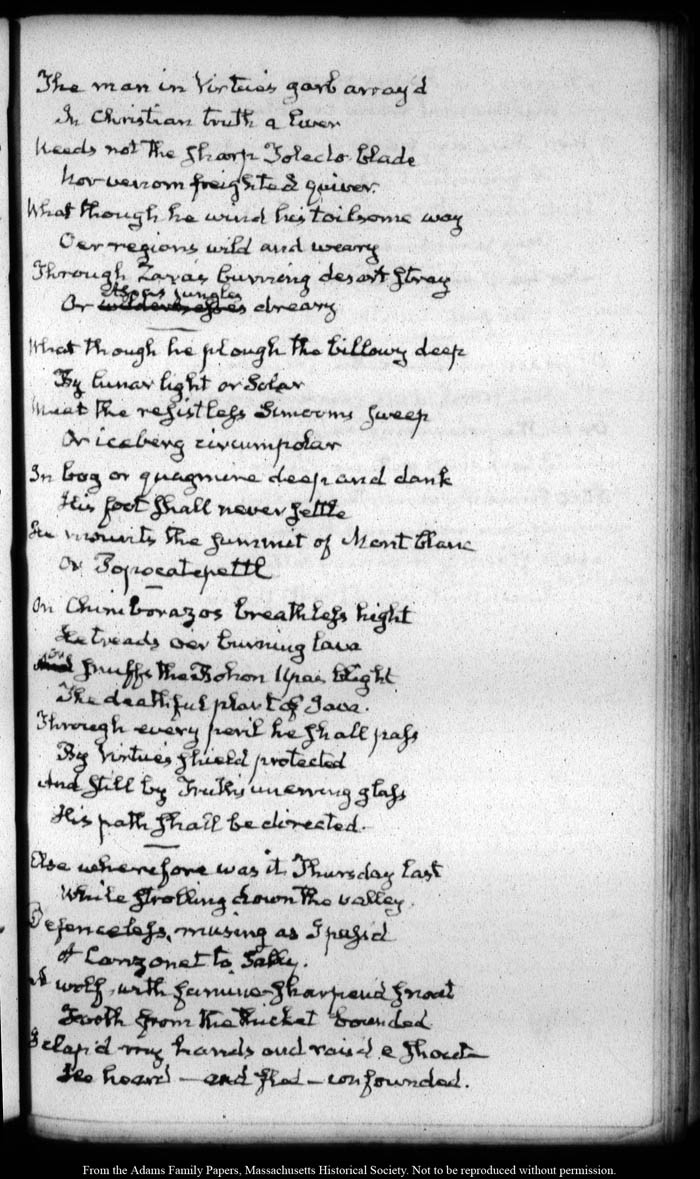 The man in Virtue's garb array'd
In Christian truth a liver
Needs not the sharp Toledo blade
Nor venom freighted quiver.
What though he wind his toilsome way
Oer regions wild and weary
Through Zara's burning desert stray
Asia's jungles
Or wildernesses dreary
What though he plough the billowy deep
By lunar light or Solar
Meet the resistless Simooms sweep
Or iceberg circumpolar
In bog or quagmire deep and dank
His foot shall never settle
He mounts the summit of Mont blanc
Or Popocatepettl
On Chimborazos breathless hight
He treads oer burning lava
Or
And snuffs the Bohon Upas blight
The deathful plant of Java.
Through every peril he shall pass
By Virtue's shield protected
And still by Truth's unerring glass
His path shall be directed.
Else wherefore was it Thursday last
While strolling down the valley.
Defenceless, musing as I pass'd
A Canzonet to Sally.
A wolf, with famine-sharpen'd snout
Forth from the thicket bounded
I clap'd my hands and rais'd a shout
He heard – and fled – confounded.
From the Adams Family Papers, Massachusetts Historical Society. Not to be reproduced without permission.